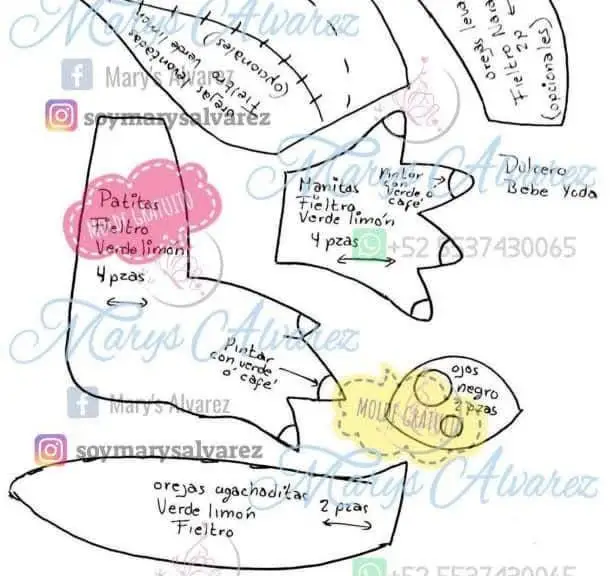 Marys Alvarez
orejas levantadas
Fieltro Verde limón
(opcionales)
orejas
Fieltro
2P
(opcionales)
Mary's Alvarez
soymarysalvarez
Marys Alvarez
Dulcero
Bebe Yoda
Patitas
Fieltro
Verde limón
4 pzas
MOLDE GRATUITO
Manitas
Fieltro
Verde limón
4 pzas
Pintar
con
verde o
café
+52 5537430065
Marys Alvarez
Pintar
con verde
o' café
ojos
negro
2 pzas
MOLDE GRATUITO
Mary's Alvarez
soymarysalvarez
Marys Alvarez
orejas agachaditas
Verde limón
Fieltro
2 pzas
+52 5537430065